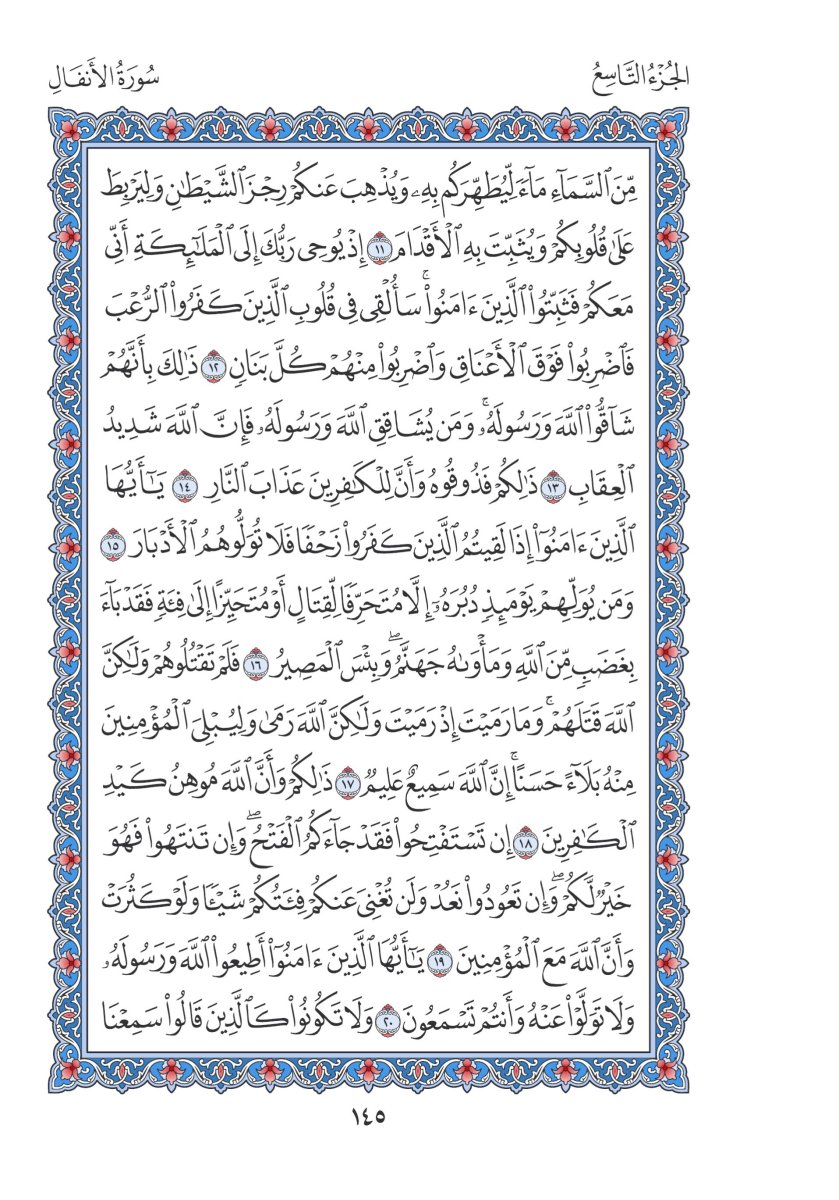 الجُزْءُ التَّاسِعُ
سُورَةُ الأَنفَالِ
مِّنَ ٱلسَّمَآءِ مَآءً لِّيُطَهِّرَكُم بِهِۦ وَيُذْهِبَ عَنكُمْ رِجْزَ ٱلشَّيْطَٰنِ وَلِيَرْبِطَ
عَلَىٰ قُلُوبِكُمْ وَيُثَبِّتَ بِهِ ٱلْأَقْدَامَ ١١ إِذْ يُوحِى رَبُّكَ إِلَى ٱلْمَلَٰٓئِكَةِ أَنِّى
مَعَكُمْ فَثَبِّتُوا۟ ٱلَّذِينَ ءَامَنُوا۟ ۚ سَأُلْقِى فِى قُلُوبِ ٱلَّذِينَ كَفَرُوا۟ ٱلرُّعْبَ
فَٱضْرِبُوا۟ فَوْقَ ٱلْأَعْنَاقِ وَٱضْرِبُوا۟ مِنْهُمْ كُلَّ بَنَانٍ ١٢ ذَٰلِكَ بِأَنَّهُمْ
شَآقُّوا۟ ٱللَّهَ وَرَسُولَهُۥ ۚ وَمَن يُشَاقِقِ ٱللَّهَ وَرَسُولَهُۥ فَإِنَّ ٱللَّهَ شَدِيدُ
ٱلْعِقَابِ ١٣ ذَٰلِكُمْ فَذُوقُوهُ وَأَنَّ لِلْكَٰفِرِينَ عَذَابَ ٱلنَّارِ ١٤ يَٰٓأَيُّهَا
ٱلَّذِينَ ءَامَنُوٓا۟ إِذَا لَقِيتُمُ ٱلَّذِينَ كَفَرُوا۟ زَحْفًا فَلَا تُوَلُّوهُمُ ٱلْأَدْبَارَ ١٥
وَمَن يُوَلِّهِمْ يَوْمَئِذٍ دُبُرَهُۥٓ إِلَّا مُتَحَرِّفًا لِّقِتَالٍ أَوْ مُتَحَيِّزًا إِلَىٰ فِئَةٍ فَقَدْ بَآءَ
بِغَضَبٍ مِّنَ ٱللَّهِ وَمَأْوَىٰهُ جَهَنَّمُ ۖ وَبِئْسَ ٱلْمَصِيرُ ١٦ فَلَمْ تَقْتُلُوهُمْ وَلَٰكِنَّ
ٱللَّهَ قَتَلَهُمْ ۚ وَمَا رَمَيْتَ إِذْ رَمَيْتَ وَلَٰكِنَّ ٱللَّهَ رَمَىٰ وَلِيُبْلِىَ ٱلْمُؤْمِنِينَ
مِنْهُ بَلَآءً حَسَنًا ۚ إِنَّ ٱللَّهَ سَمِيعٌ عَلِيمٌ ١٧ ذَٰلِكُمْ وَأَنَّ ٱللَّهَ مُوهِنُ كَيْدِ
ٱلْكَٰفِرِينَ ١٨ إِن تَسْتَفْتِحُوا۟ فَقَدْ جَآءَكُمُ ٱلْفَتْحُ ۖ وَإِن تَنتَهُوا۟ فَهُوَ
خَيْرٌ لَّكُمْ ۖ وَإِن تَعُودُوا۟ نَعُدْ وَلَن تُغْنِىَ عَنكُمْ فِئَتُكُمْ شَيْـًٔا وَلَوْ كَثُرَتْ
وَأَنَّ ٱللَّهَ مَعَ ٱلْمُؤْمِنِينَ ١٩ يَٰٓأَيُّهَا ٱلَّذِينَ ءَامَنُوٓا۟ أَطِيعُوا۟ ٱللَّهَ وَرَسُولَهُۥ
وَلَا تَوَلَّوْا۟ عَنْهُ وَأَنتُمْ تَسْمَعُونَ ٢٠ وَلَا تَكُونُوا۟ كَٱلَّذِينَ قَالُوا۟ سَمِعْنَا
١٤٥